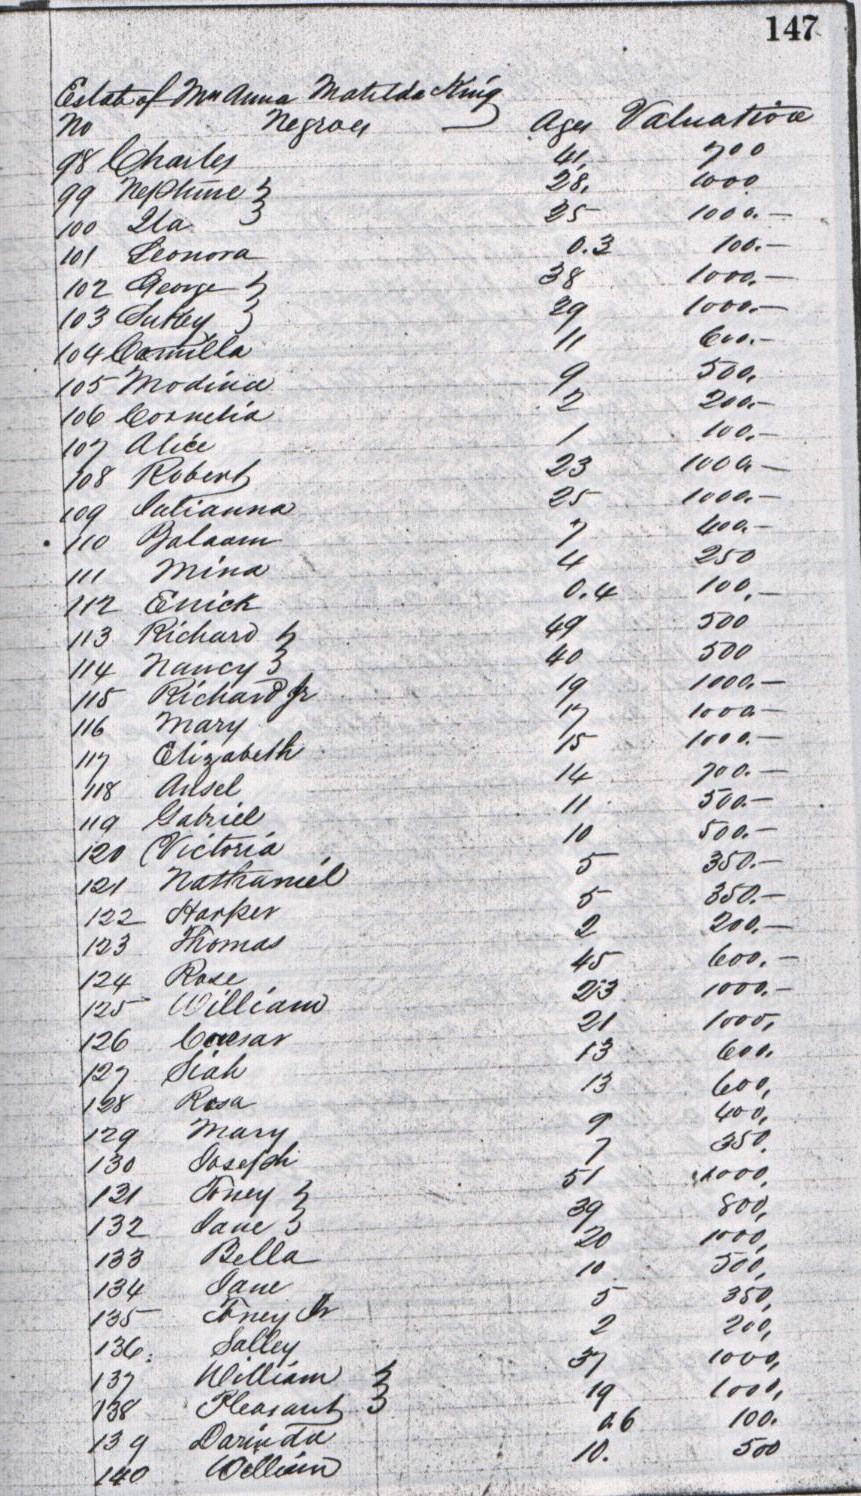 147
Estate of Mrs Anna Matilda King
No Negroes Ages Valuation
98 Charles 41, 700
99 Nephune } 28, 1000
100 Ila } 25 1000.—
101 Leonora 0.3 100.—
102 George } 38 1000.—
103 Sukey } 29 1000.—
104 Camilla 11 600.—
105 Modina 9 500.
106 Cornelia 2 200.—
107 Alice 1 100.—
108 Robert 23 1000—
109 Julianna 25 1000.—
110 Balaam 7 400.—
111 Mina 4 250
112 Erick 0.4 100.—
113 Richard } 49 500
114 Nancy } 40 500
115 Richard Jr 19 1000.—
116 Mary 17 1000—
117 Elizabeth 15 1000.—
118 Ansel 14 700.—
119 Gabriel 11 500.—
120 Victoria 10 500.—
121 Nathaniel 5 350.—
122 Harper 5 350.—
123 Thomas 2 200.—
124 Rose 45 600.—
125 William 23 1000.—
126 Caesar 21 1000,
127 Siah 13 600.
128 Rosa 13 600,
129 Mary 9 400,
130 Joseph 7 350.
131 Toney } 51 1000,
132 Jane } 39 800,
133 Bella 20 1000,
134 Jane 10 500,
135 Toney Jr 5 350,
136. Salley 2 200,
137 William } 37 1000,
138 Pleasant } 19 1000,
139 Darinda 0.6 100.
140 William 10. 500